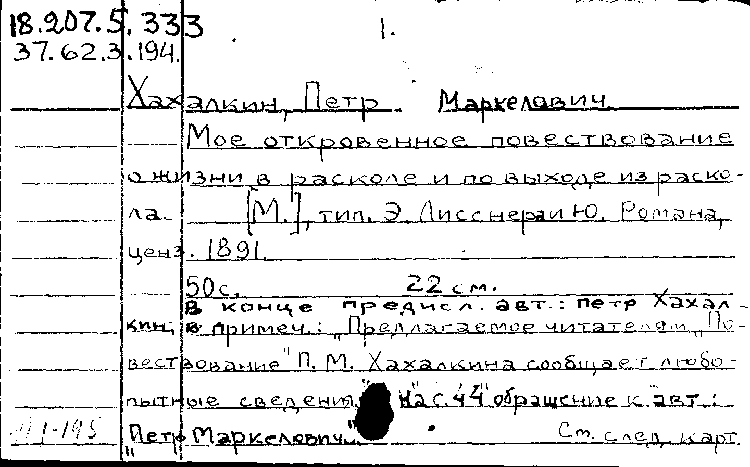 18.207.5.333
1.
37.62.3.194.
Хахалкин, Петр Маркелович.
Мое откровенное повествование
о жизни в расколе и по выходе из раско-
ла. [М.], тип. Э. Лисснера и Ю. Романа,
ценз. 1891.
50 с. 22 см.
В конце предисл. авт.: Петр Хахал-
кин; в примеч.: "Предлагаемое читателям "По-
вествование" П. М. Хахалкина сообщает любо-
пытные сведения." На с. 44 обращение к авт.:
"Петр Маркелович".
См. след. карт.